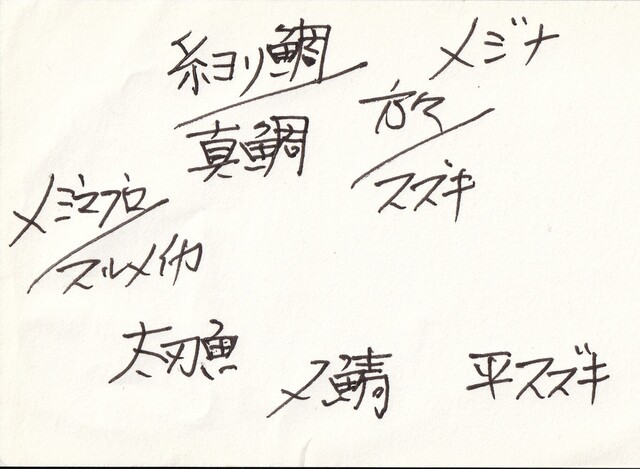 糸ヨリ鯛
真鯛
メジナ
方々
スズキ
メジマグロ
スルメイカ
太刀魚
〆鯖
平スズキ